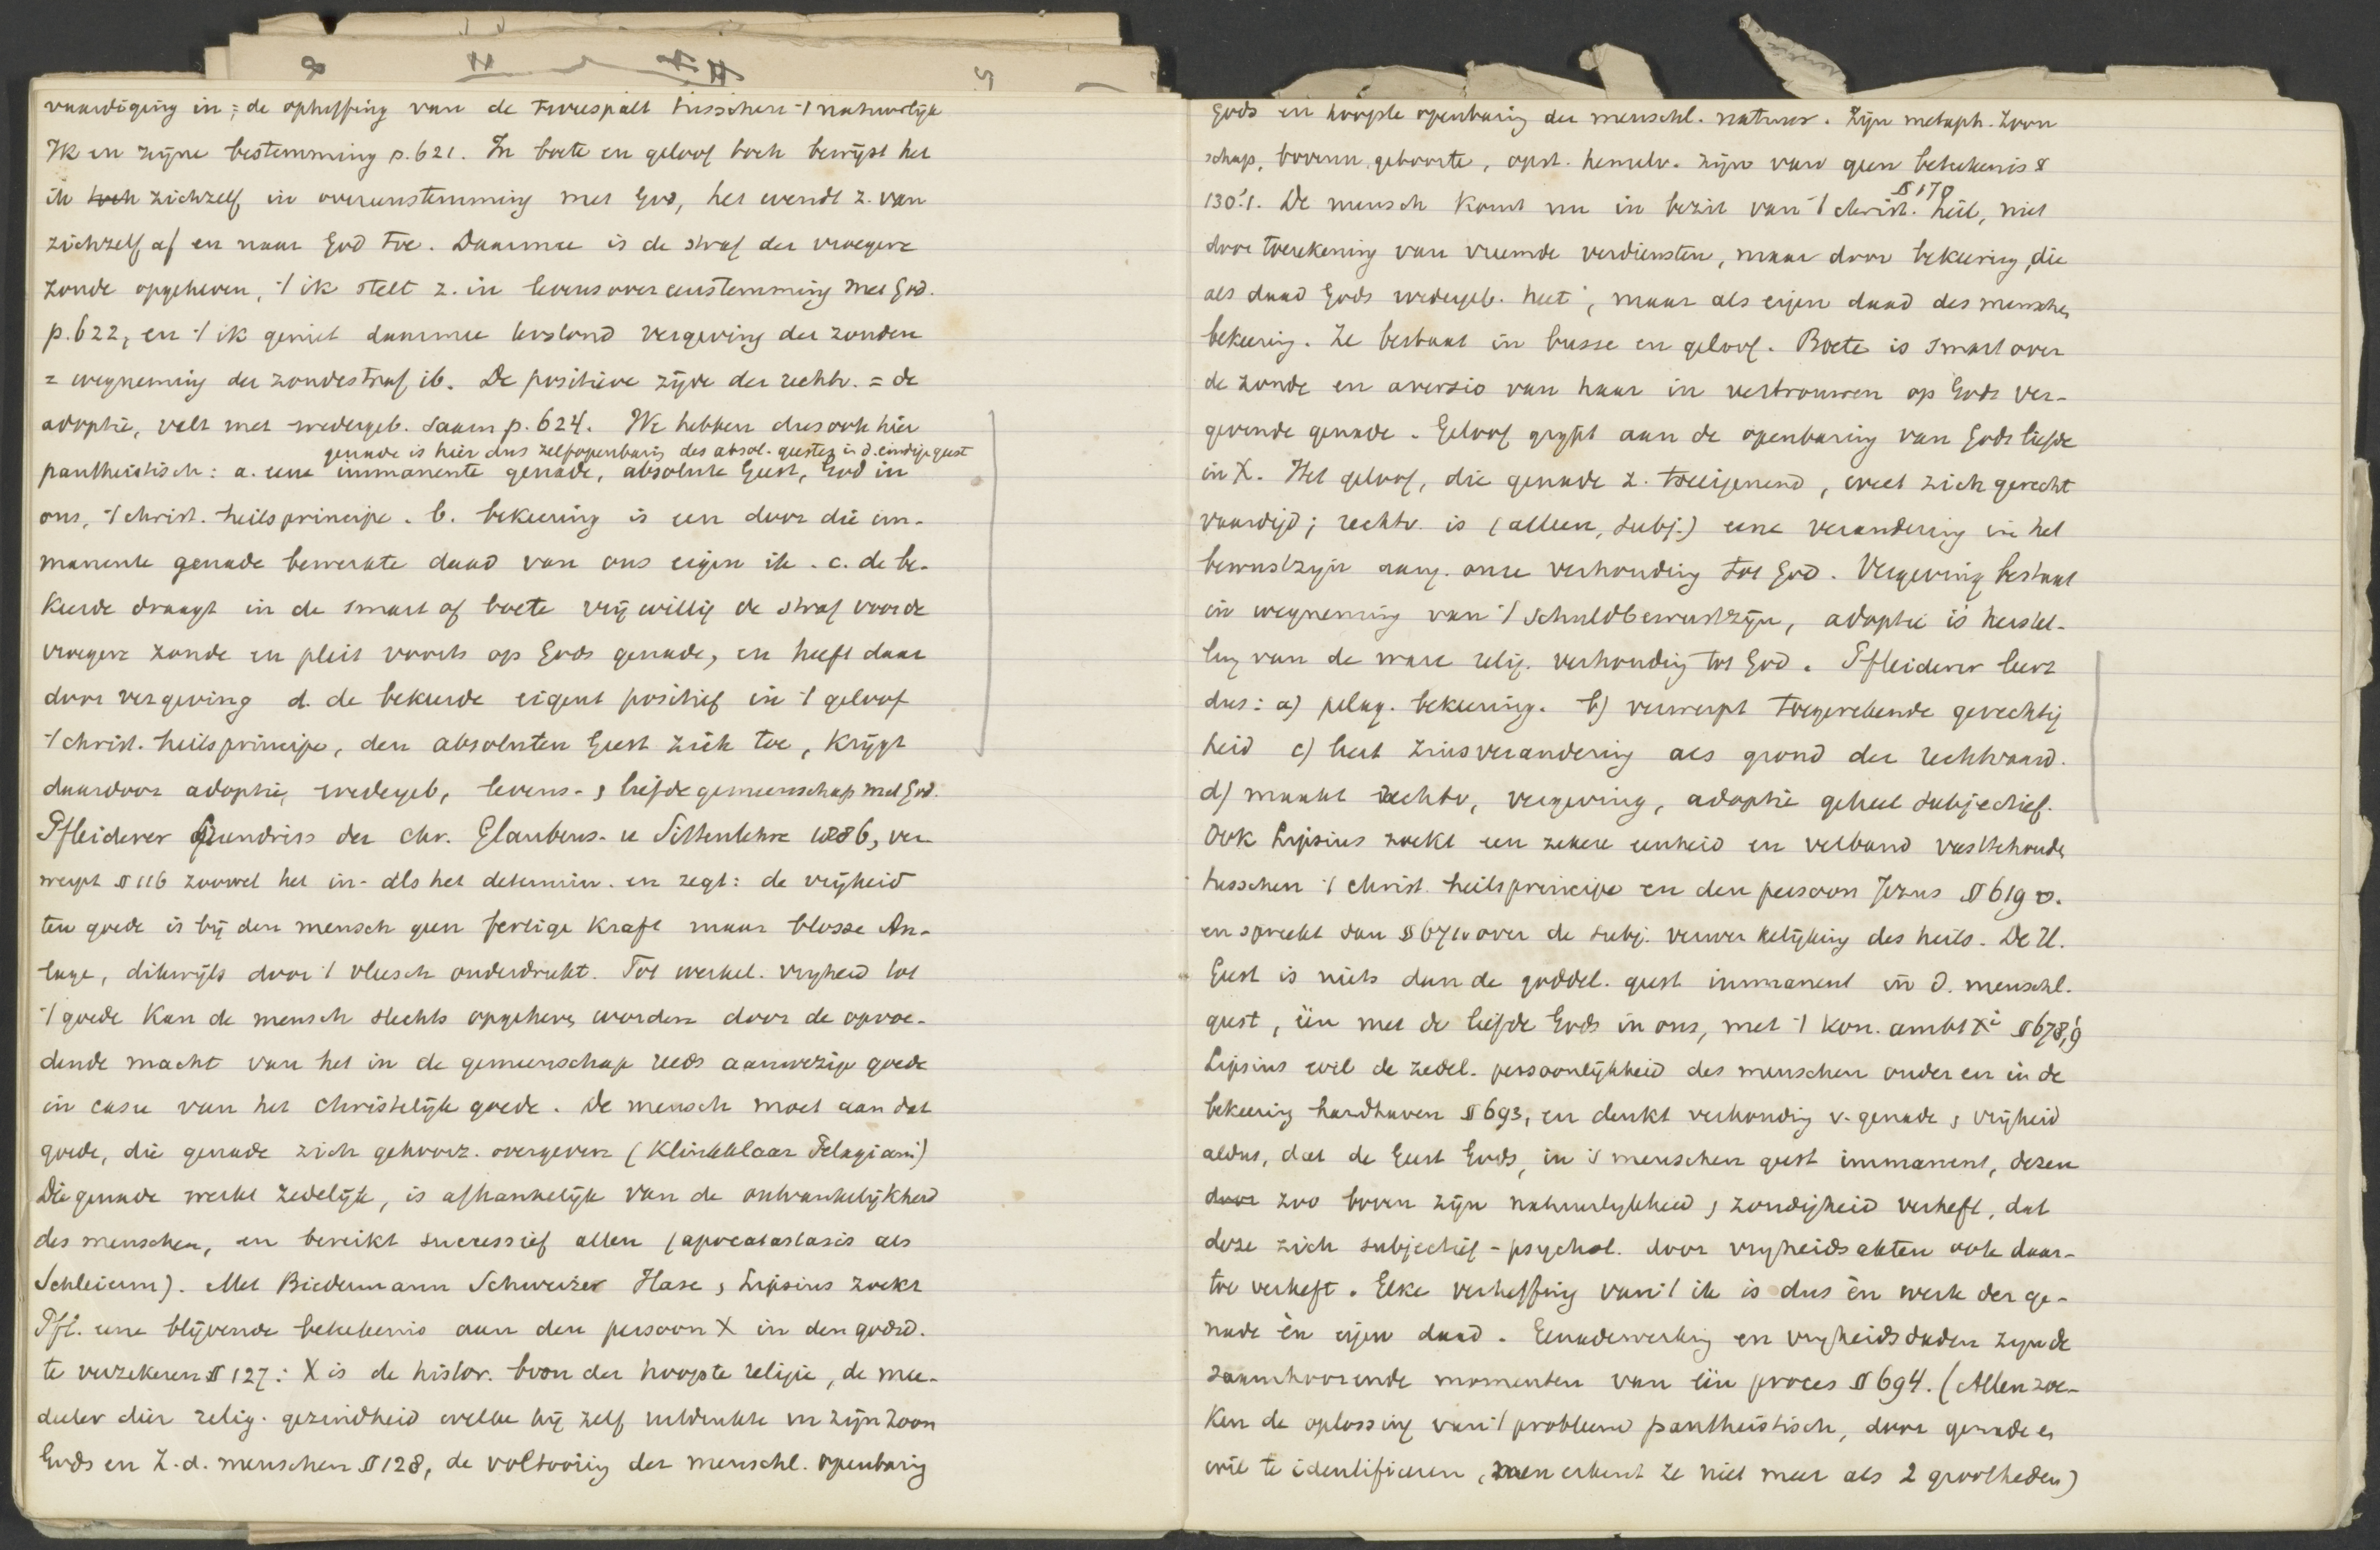 vaardiging in; de opheffing van de tweespalt tusschen 't natuurlijk
Ik en zijne bestemming p. 621. In boete en geloof toch bewijst het
ik toch zichzelf in overeenstemming met God, het wendt z. van
zichzelf af en naar God toe. Daarmee is de straf der vroegere
zonde opgeheven, 't ik stelt z. in levensovereenstemming met God.
p. 622, en 't ik geniet daarmee terstond vergeving der zonden
= wegneming der zondestraf, ib. De positieve zijde der rechtv. = de
adoptie, valt met wedergeb. saam p. 624. We hebben dus ook hier
genade is hier dus zelfopenbaring des absol. geestes in d. eindige geest
pantheistisch: a. eene immanente genade, absolute Geest, God in
ons, 't christ. heilsprincipe. b. bekeering is een door die im-
manente genade bewerkte daad van ons eigen ik. c. de be-
keerde draagt in de smart of boete vrijwillig de straf voor de
vroegere zonde en pleit voorts op Gods genade, en heeft daar
door vergeving d. de bekeerde eigent positief in 't geloof
't christ. heilsprincipe, den absoluten Geest zich toe, krijgt
daardoor adoptie, wedergeb, levens- & liefdegemeenschap met God.
Pfleiderer Grundriss der chr. Glaubens- u Sittenlehre 1886, ver
werpt § 116 zoowel het in- als het determin. en zegt: de vrijheid
ten goede is bij den mensch geen fertige Kraft maar blosse An-
lage, dikwijls door 't vleesch onderdrukt. Tot werkel. vrijheid tot
't goede kan de mensch slechts opgeheven worden door de opvoe-
dende macht van het in de gemeenschap reeds aanwezige goede
in casu van het christelijk goede. De mensch moet aan dat
goede, die genade zich gehoorz. overgeven (Klinkklaar Pelagian.)
Die genade werkt zedelijk, is afhankelijk van de ontvankelijkheid
des menschen, en bereikt successief allen (apocatastasis als
Schleierm). Met Biedermann Schweizer Hase & Lipsius zoekt
Pfl. eene blijvende beteekenis aan den persoon X in den godsd.
te verzekeren § 127: X is de histor. bron der hoogste religie, de mee-
deeler dier relig. gezindheid welke hij zelf uitdrukte in zijn Zoon
Gods en Z. d. menschen § 128, de voltooiing der menschl. openbaring
Gods en hoogste openbaring der menschl. natuur. Zijn metaph. Zoon
schap, bovenn. geboorte, opst. hemelv. zijn van geen beteekenis §
§ 170
130.'1. De mensch komt nu in bezit van 't christ. heil, niet
door toerekening van vreemde verdiensten, maar door bekeering, die
als daad Gods wedergeb. heet, maar als eigen daad des menschen
bekeering. Ze bestaat in busse en geloof. Boete is smart over
de zonde en aversio van haar in vertrouwen op Gods ver-
gevende genade. Geloof grijpt aan de openbaring van Gods liefde
in X. Het geloof, die genade z. toeeigenend, weet zich gerecht
vaardigd; rechtv. is (alleen, subj.) eene verandering in het
bewustzijn aang. onze verhouding tot God. Vergeving bestaat
in wegneming van 't schuldbewustzijn, adoptie is herstel-
ling van de ware relig. verhouding tot God. Pfleiderer leert
dus: a) pelag. bekeering. b) verwerpt toegerekende gerechtig
heid c) leert zinsverandering als grond der rechtvaard.
d) maakt rechtv, vergeving, adoptie geheel subjectief.
Ook Lipsius zoekt een zekere eenheid en verband vasttehouden
tusschen 't christ. heilsprincipe en den persoon Jezus § 619 v.
en spreekt dan § 671v over de subj. verwerkelijking des heils. De H.
Geest is niets dan de goddel. geest immanent in d. menschl.
geest, één met de liefde Gods in ons, met 't kon. ambt Xi § 678,'9
Lipsius wil de zedel. persoonlijkheid des menschen onder en in de
bekeering handhaven § 693, en denkt verhouding v. genade & vrijheid
aldus, dat de Geest Gods, in 's menschen geest immanent, dezen
door zoo boven zijn natuurlijkheid & zondigheid verheft, dat
deze zich subjectief-psychol. door vrijheidsakten ook daar-
toe verheft. Elke verheffing van 't ik is dus èn werk der ge-
nade èn eigen daad. Genadewerking en vrijheidsdaden zijn de
saamhoorende momenten van één proces § 694. (Allen zoe-
ken de oplossing van 't probleem pantheistisch, door genade en
wil te identificeeren, men erkent ze niet meer als 2 grootheden)